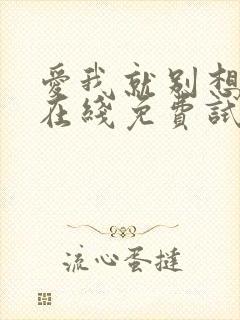 愛我就別想
在綫免費試
流心蛋撻